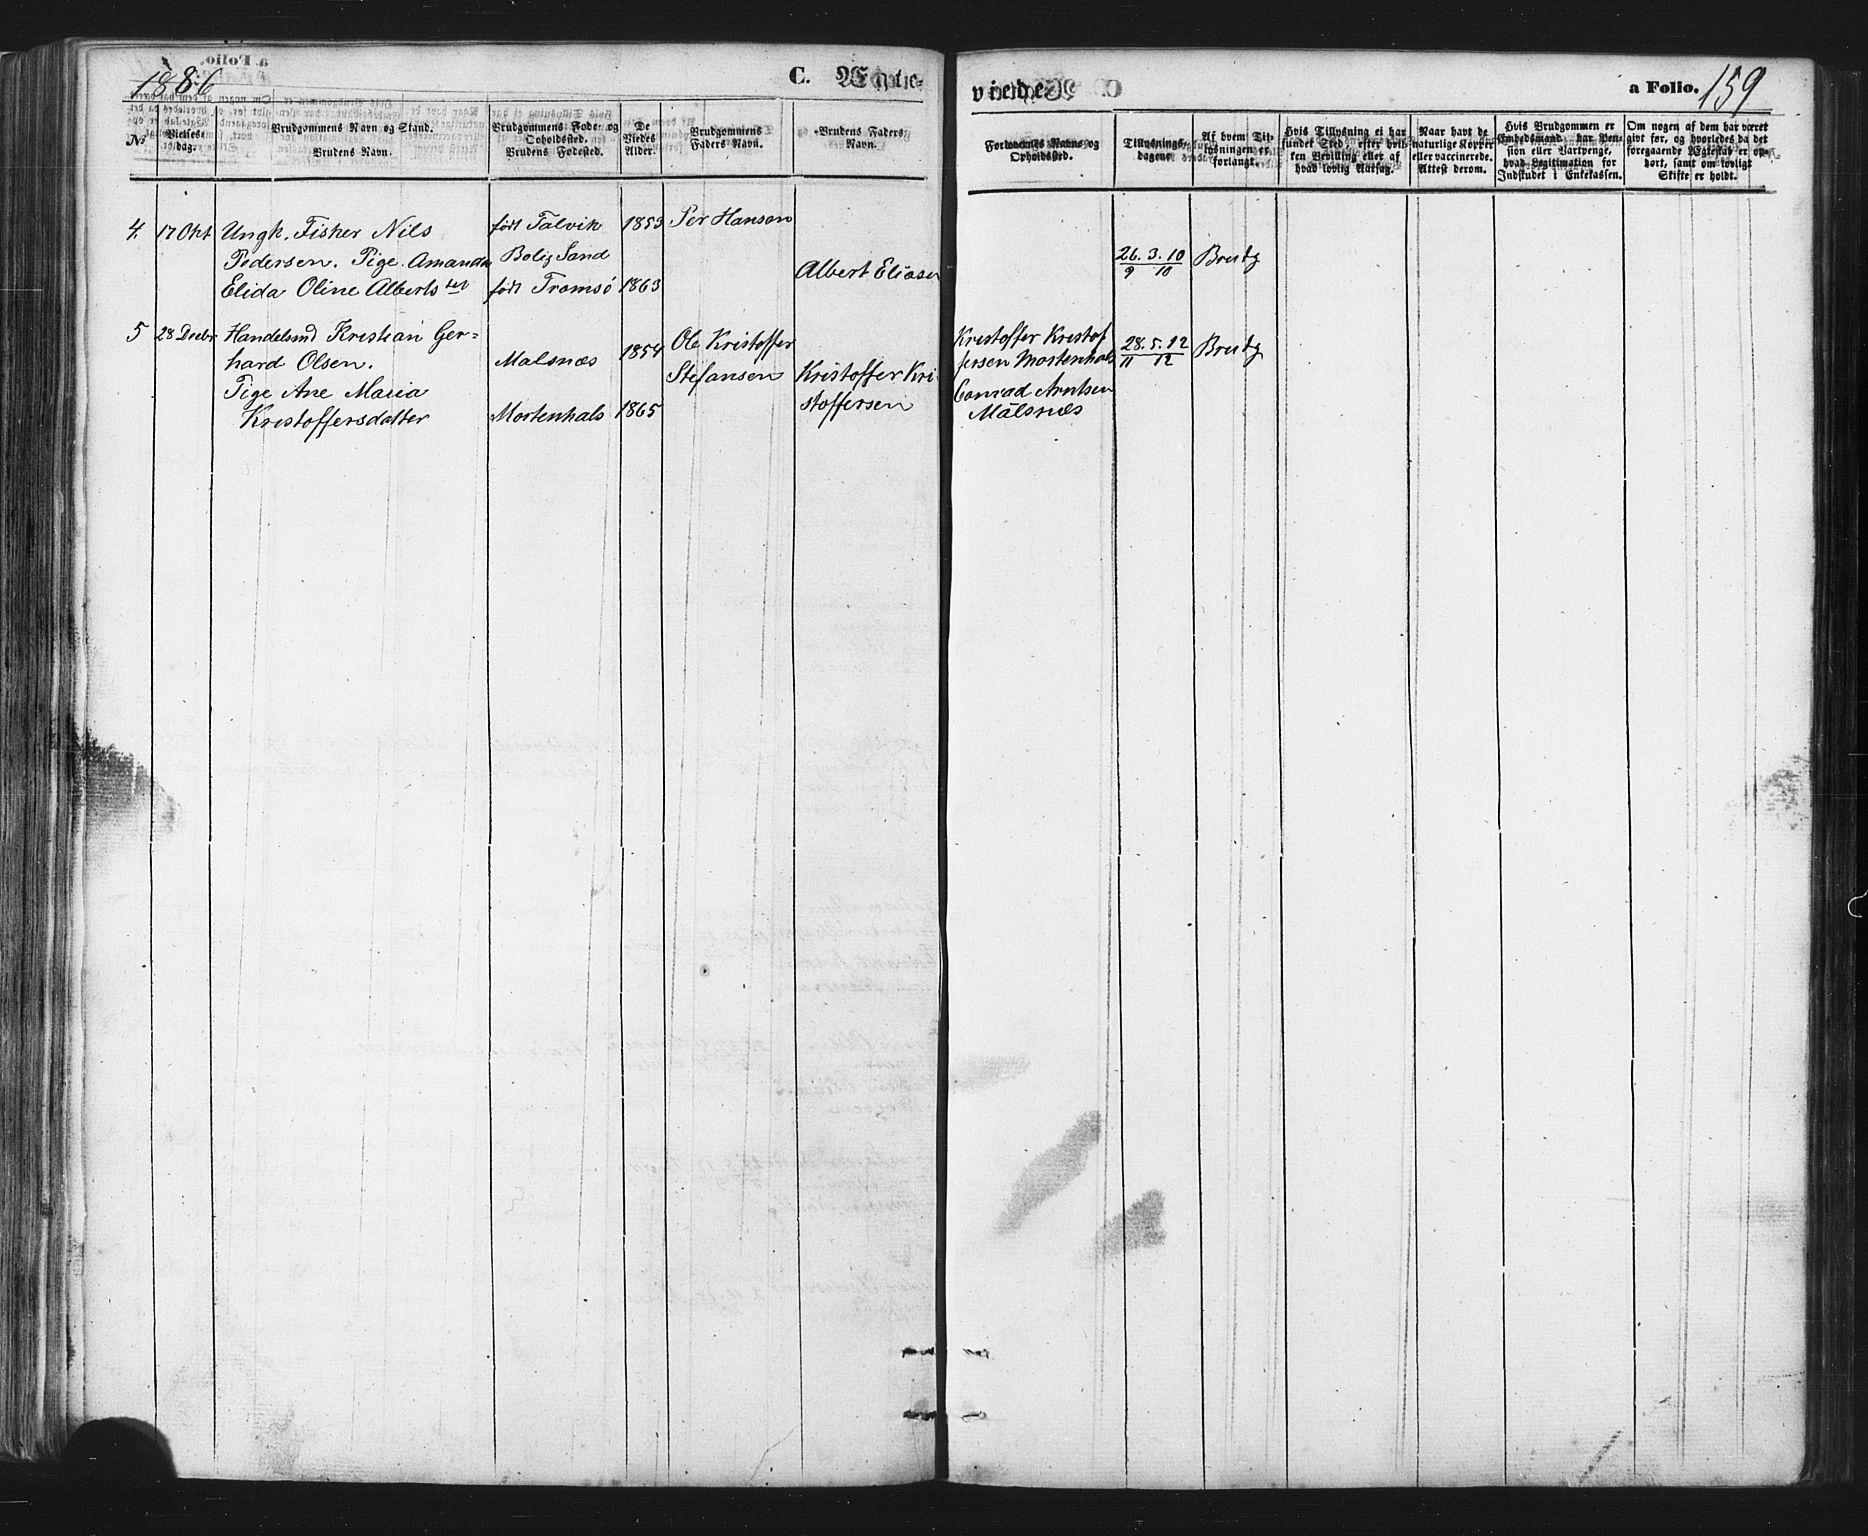 1886
C. Ægte-
viede.
a Folio. 159
№
Vielses-
dag.
Brudgommens Navn og Stand.
Brudens Navn.
Brudgommens Føde- og
Opholdssted.
Brudens Fødested.
De
Viedes
Alder.
Brudgommens
Faders Navn.
Brudens Faders
Navn.
Forlovernes Navne og
Opholdssted.
Tillysnings-
dagene.
Af hvem Til-
lysningen er
forlangt.
Hvis Tillysning ei har
fundet Sted, efter hvil-
ken Bevilling eller af
hvad lovlig Aarsag.
Naar havt de
naturlige Kopper
eller vaccinerede.
Attest derom.
Hvis Brudgommen er
Embedsmand, har Pen-
sion eller Vartpenge,
hvad Legitimation for
Indskudet i Enkekassen.
Om nogen af dem har været
gift før, og hvorledes da det
foregaaende Ægteskab er op-
hørt, samt om lovligt
Skifte er holdt.
4. 17 Okt Ungk. Fisker Nils født Talvik 1853 Per Hansen
Pedersen. Pige Amanda Bolig Sand 26. 3. 10 Brudg
9 10
Elida Oline Albertsdtr født Tromsø 1863 Albert Eliasen
5 28 Decbr Handelsmd Kristian Ger-
hard Olsen. Malsnæs 1854 Ole Kristoffer
Stefansen
Pige Ane Maria
Kristoffersdatter Mortenhals 1865 Kristoffer Kri-
stoffersen
Kristoffer Kristof
fersen Mortenhals
Conrad Arntsen
Målsnæs
28. 5. 12 Brudg
11 12